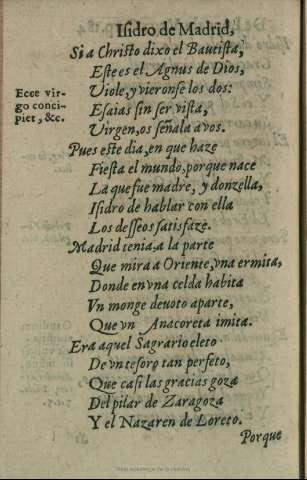 Isidro de Madrid,
Si a Christo dixo el Bautista,
Este es el Agnus de Dios,
Ecce vir-
go conci-
piet, &c.
Viole, y vieronse los dos:
Esaias sin ser vista,
Virgen, os señala a vos.
Pues este dia, en que haze
Fiesta el mundo, porque nace
La que fue madre, y donzella,
Isidro de hablar con ella
Los desseos satisfaze.
Madrid tenia, a la parte
Que mira a Oriente, vna ermita,
Donde en vna celda habita
Vn monge deuoto aparte,
Que vn Anacoreta imita.
Era aquel Sagrario eleto
De vn tesoro tan perfeto,
Que casi las gracias goza
Del pilar de Zaragoza
Y el Nazaren de Loreto.
Porque